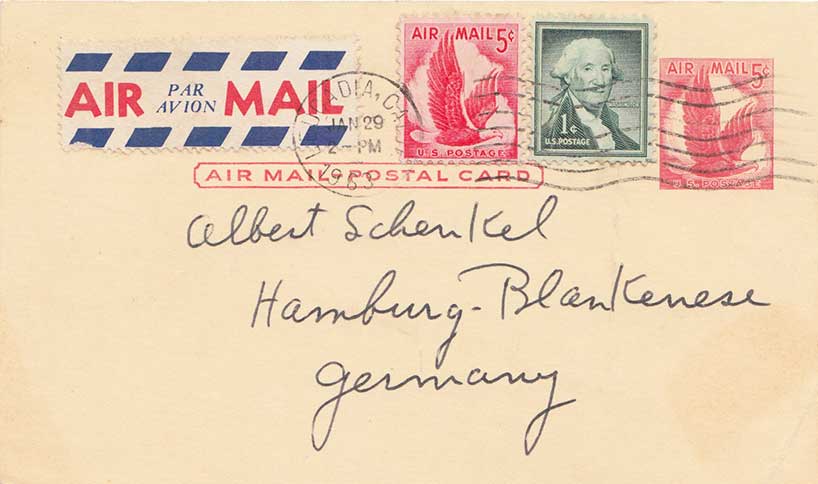 AIR PAR AVION MAIL
AIR MAIL 5¢
U.S. POSTAGE
1¢
U.S. POSTAGE
AIR MAIL 5¢
U.S. POSTAGE
LEUCADIA, CAL
JAN 29
2 - PM
1963
AIR MAIL POSTAL CARD
Albert Schenkel
Hamburg-Blankenese
Germany